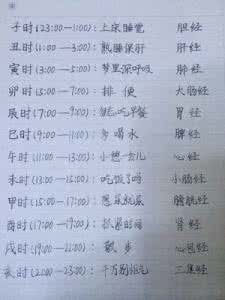 子时(23:00—1:00):上床睡觉 胆经
丑时(1:00—3:00):熟睡保肝 肝经
寅时(3:00—5:00):梦里深呼吸 肺经
卯时(5:00—7:00):排便 大肠经
辰时(7:00—9:00):吃早餐 胃经
巳时(9:00—11:00):多喝水 脾经
午时(11:00—13:00):小憩一会儿 心经
未时(13:00—15:00):吃饭了吗 小肠经
甲时(15:00—17:00): 膀胱经
酉时(17:00—19:00): 时间 肾经
戌时(19:00—21:00):散步 心包经
亥时(21:00—23:00):千万别 三焦经